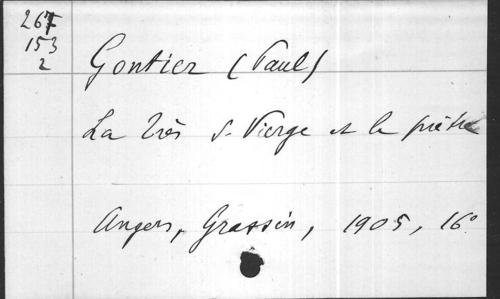 267
153
2
Gontier (Paul)
La Très S. Vierge et le prêtre
Angers, Grassin, 1905, 16°